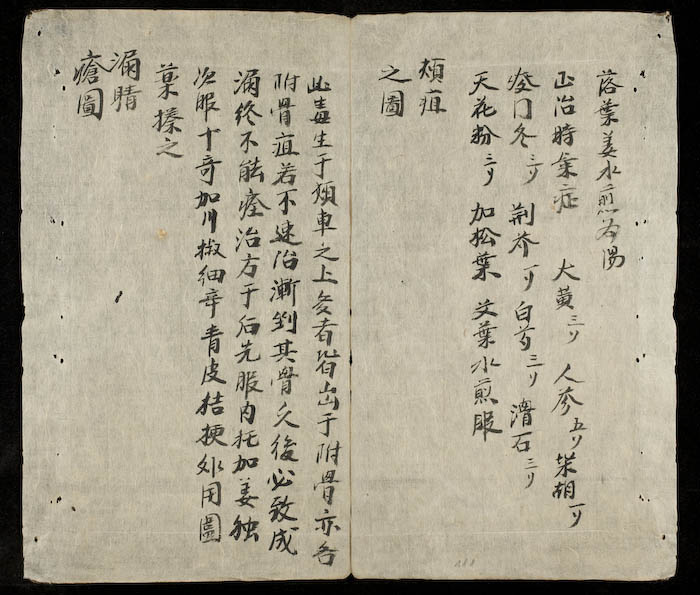 落葉姜水煎為湯
正治時氣症　大黃三刄　人參五刄　柴胡一刄
麥门冬三刄　荆芥一刄　白芍三刄　滑石三刄
天花粉三刄　加松葉　艾葉水煎服
頰疽
之圖
此毒生于頰車之上多者皆出于附骨亦名
附骨疽若不速治漸到其骨久後必致成
漏終不能痊治方于后先服内托加姜独
次服十奇加川椒細辛青皮桔梗外用圖
藥搽之
漏睛
瘡圖